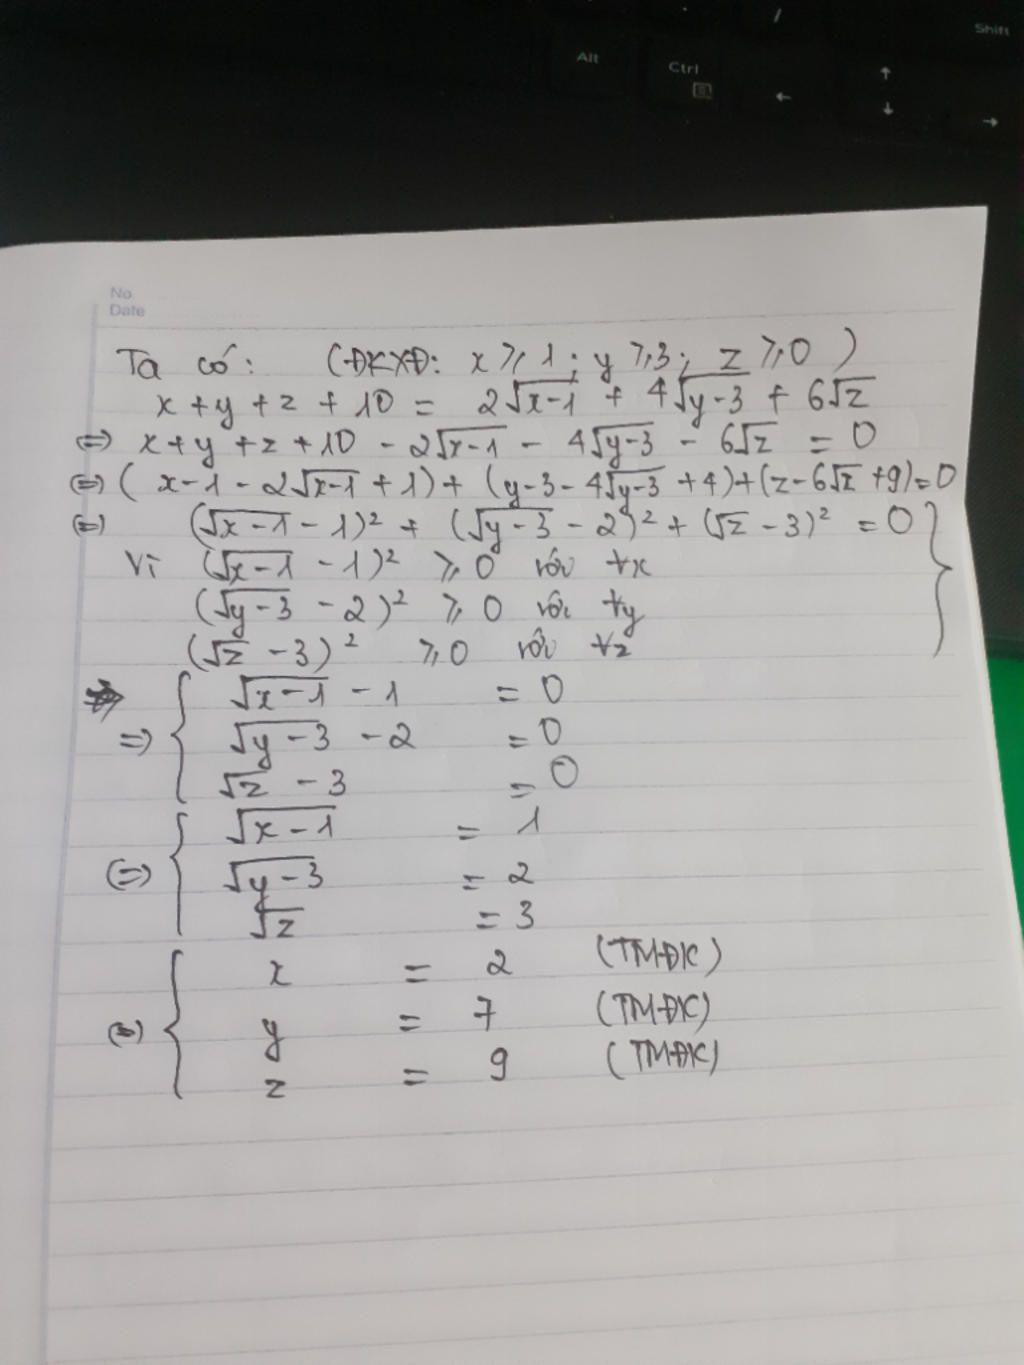 /
Shift
Alt
Ctrl
↑
←
↓
→
No
Date
Ta có: (ĐKXĐ: x ⩾ 1; y ⩾ 3; z ⩾ 0)
x + y + z + 10 = 2√(x-1) + 4√(y-3) + 6√z
⇔ x + y + z + 10 - 2√(x-1) - 4√(y-3) - 6√z = 0
⇔ (x-1-2√(x-1)+1) + (y-3-4√(y-3)+4) + (z-6√z+9) = 0
⇔ (√(x-1) - 1)² + (√(y-3) - 2)² + (√z - 3)² = 0
Vì (√(x-1) - 1)² ⩾ 0 với ∀x
(√(y-3) - 2)² ⩾ 0 với ∀y
(√z - 3)² ⩾ 0 với ∀z
√(x-1) - 1 = 0
⇒ √(y-3) - 2 = 0
√z - 3 = 0
√(x-1) = 1
⇔ √(y-3) = 2
√z = 3
x = 2 (TMĐK)
⇔ y = 7 (TMĐK)
z = 9 (TMĐK)